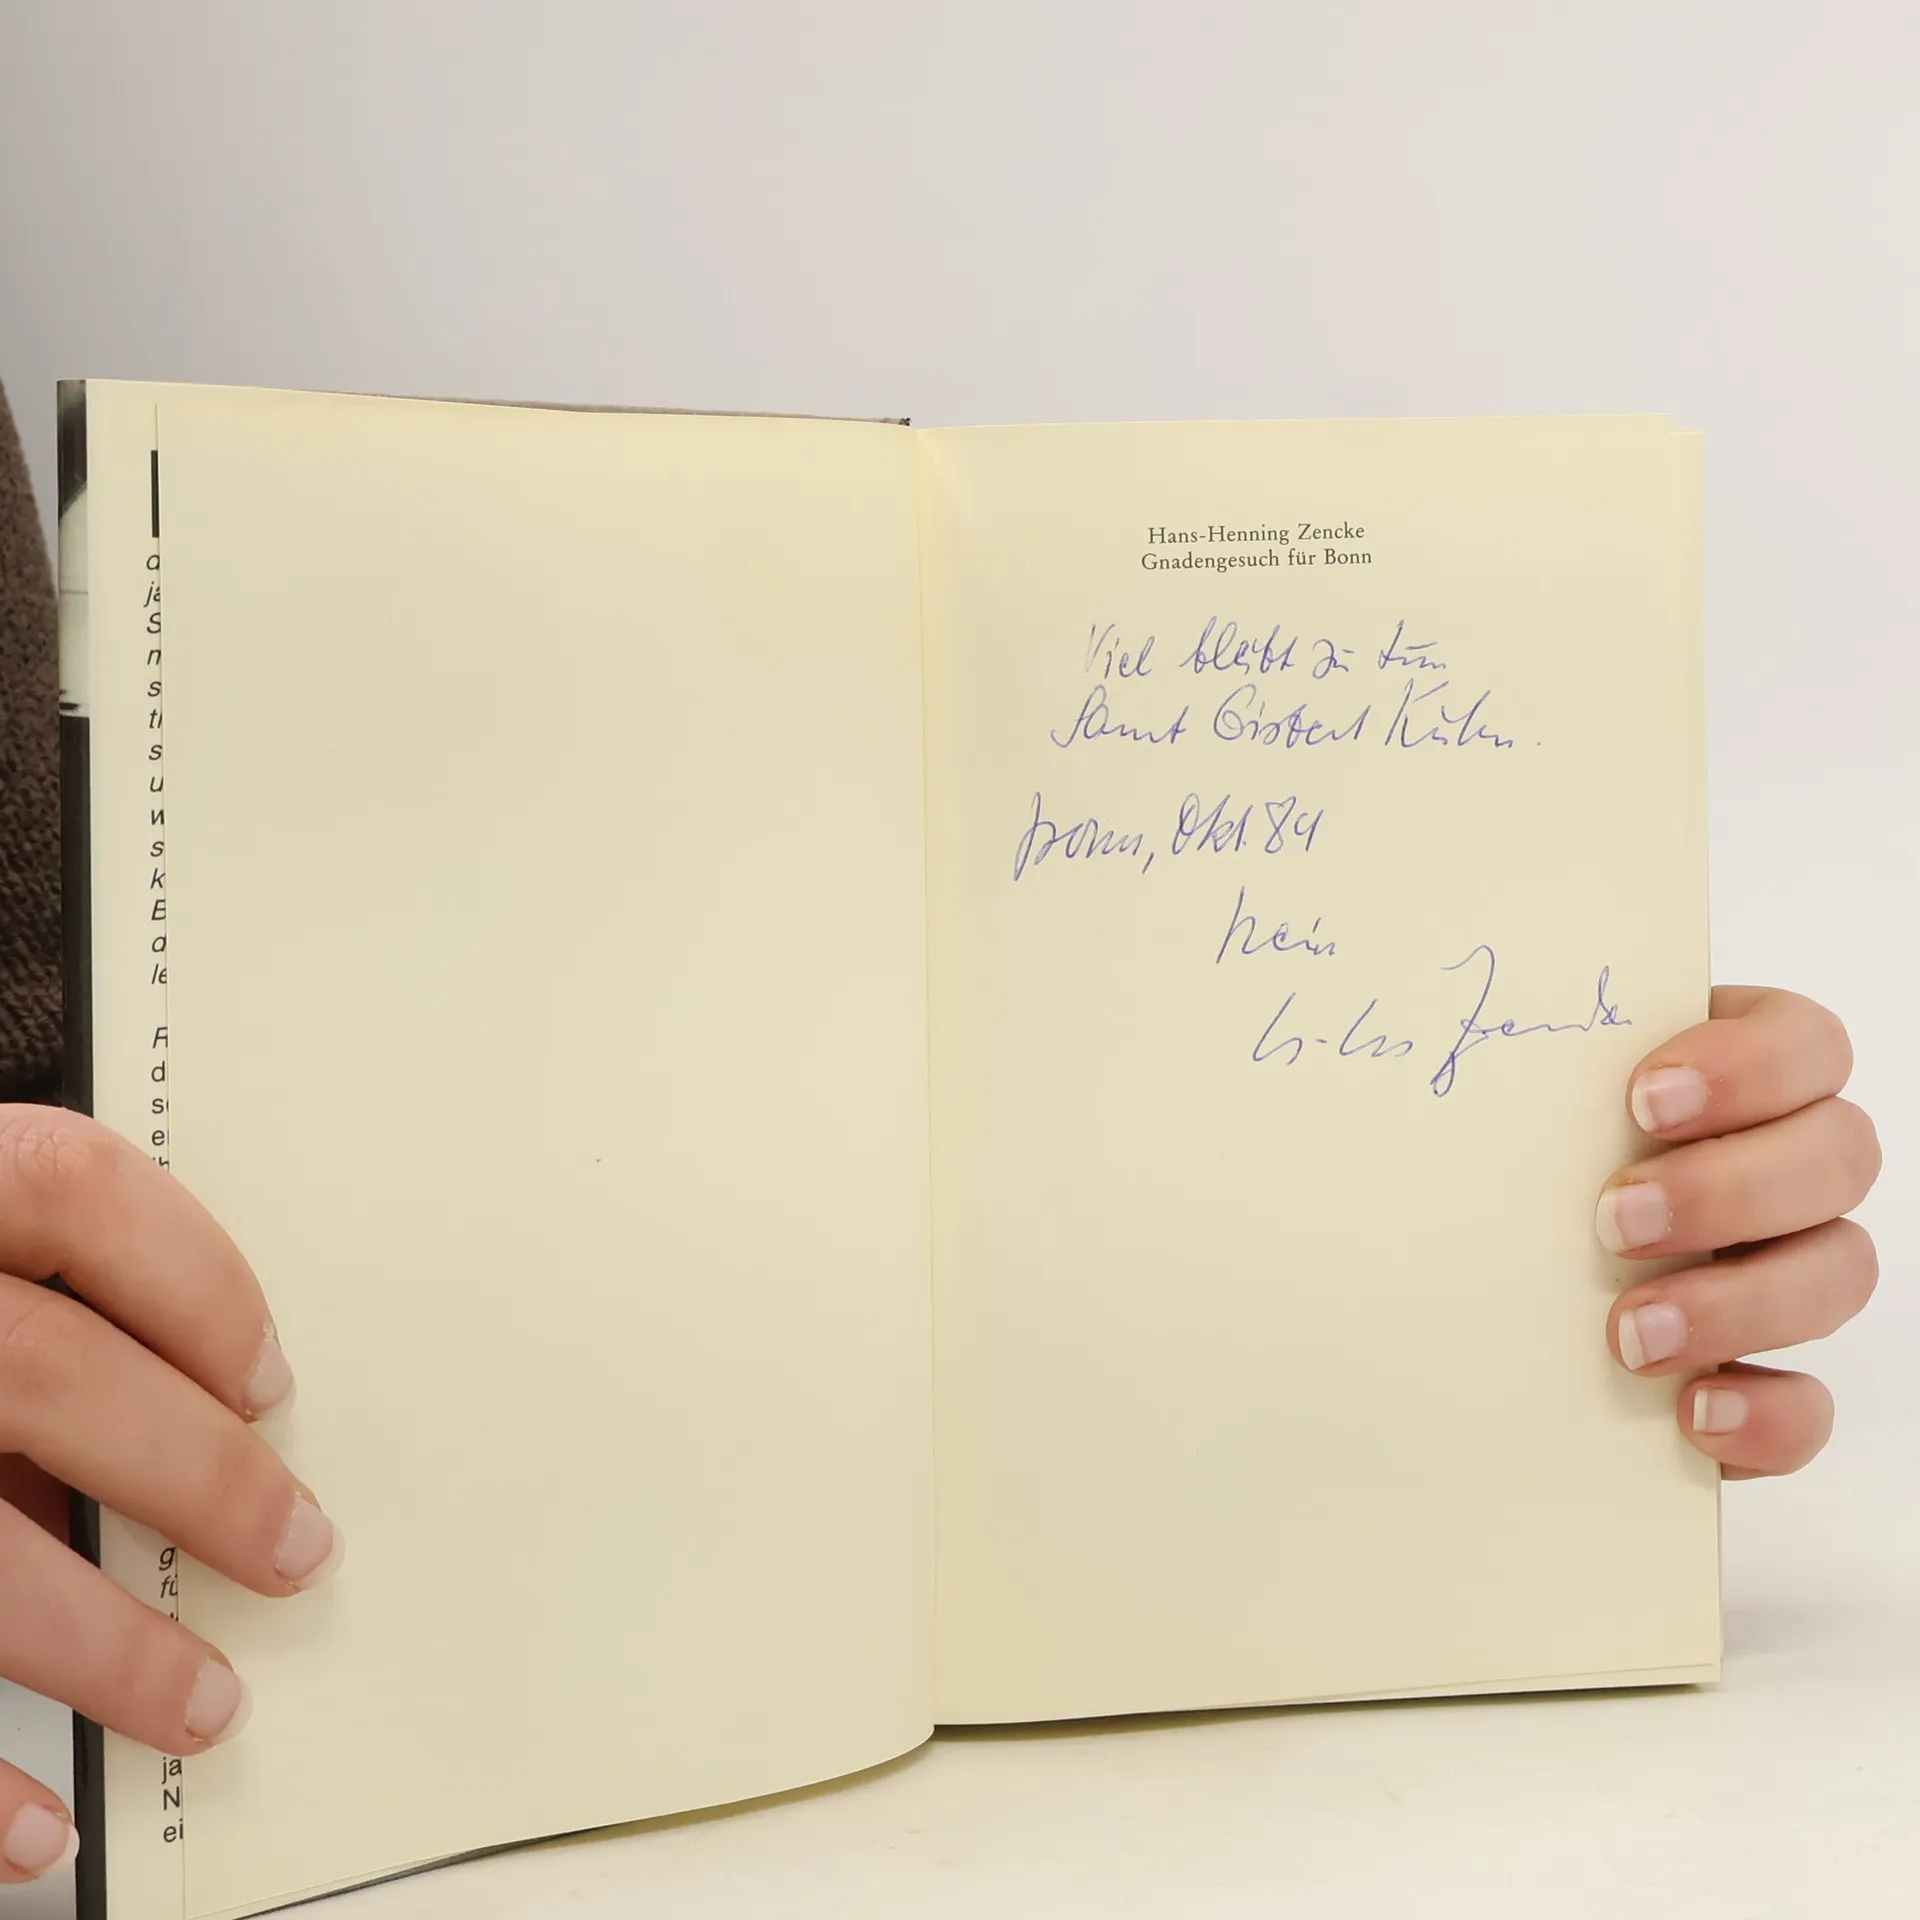 Hans-Henning Zencke
Gnadengesuch für Bonn
Viel bleibt zu tun
Samt Gisbert Kuhn.
Bonn, Okt. 84
H-H Zencke
d
ja
S
n
s
u
w
s
k
B
d
le
F
d
e
g
fü
ja
N
ei